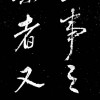 事之
者又